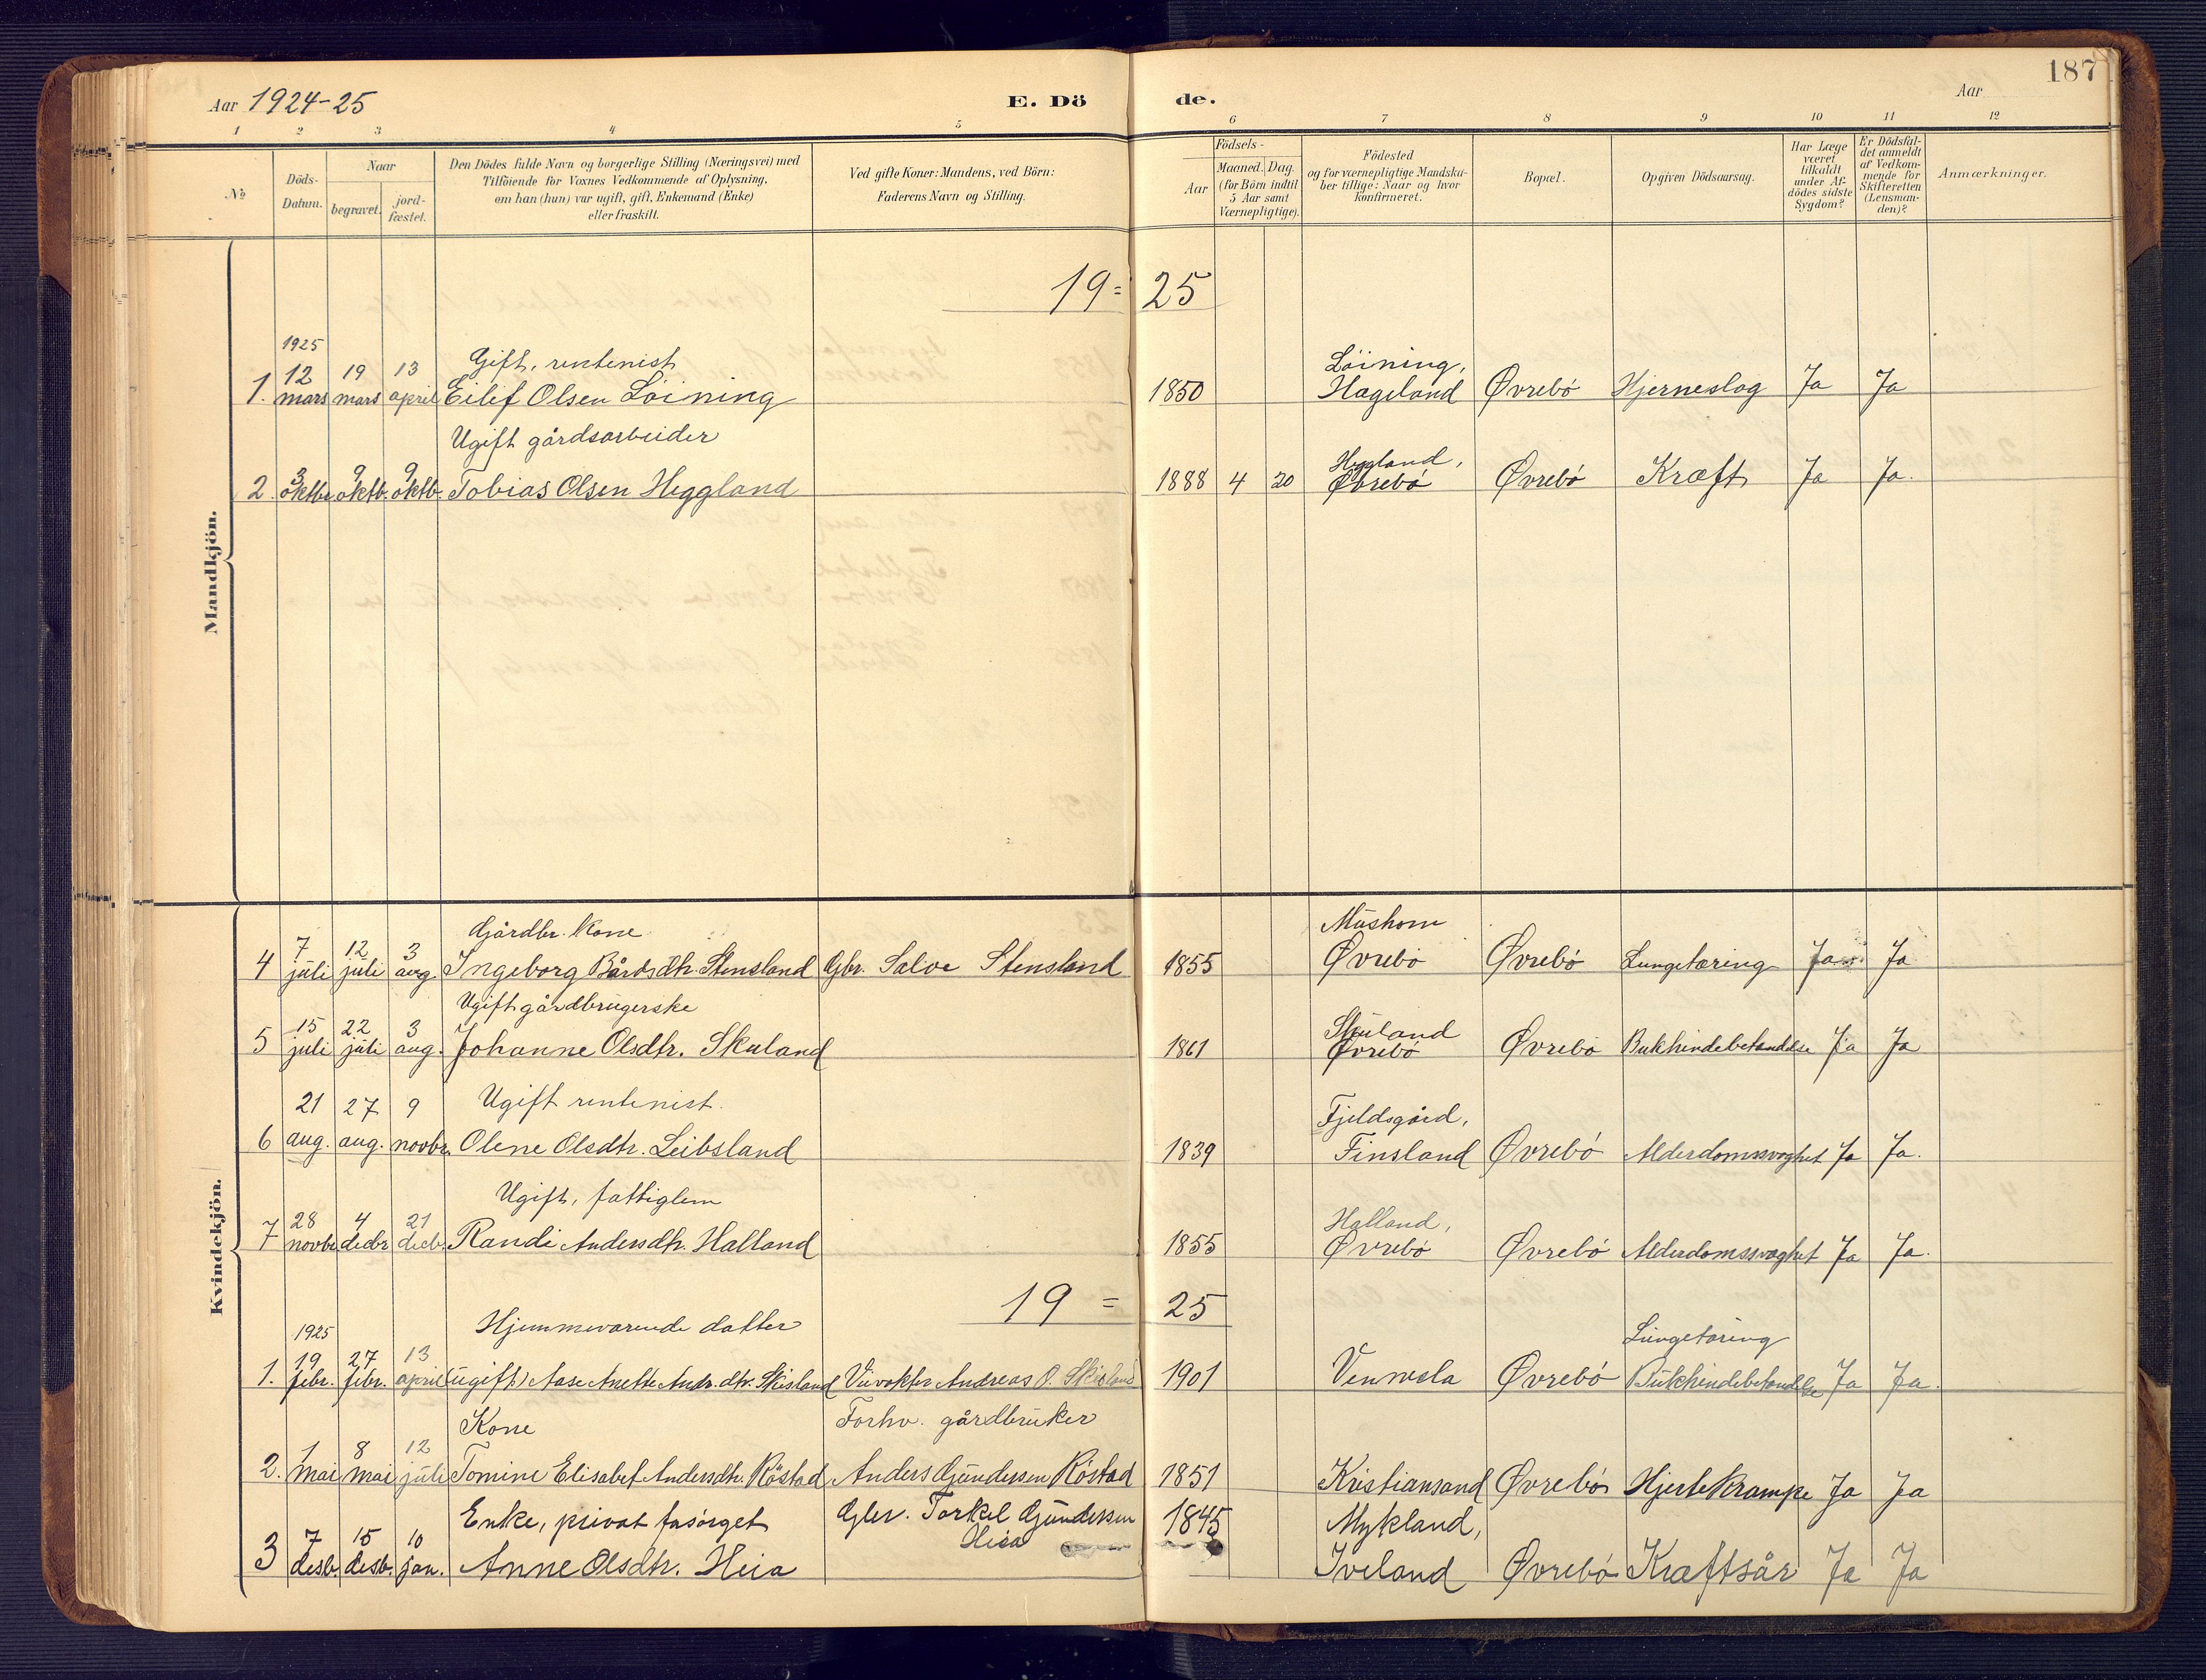 187
Aar 1924-25
E. Dö
de.
Aar
1 2 3 4 5 6 7 8 9 10 11 12
No
Döds-
Datum.
Naar
begravet.
jord-
fæstet.
Den Dödes fulde Navn og borgerlige Stilling (Næringsvei) med
Tilföiende for Voxnes Vedkommende af Oplysning.
om han (hun) var ugift, gift, Enkemand (Enke)
eller fraskilt.
Ved gifte Koner: Mandens, ved Börn:
Faderens Navn og Stilling.
Födsels-
Aar
Maaned. Dag.
(for Börn indtil
5 Aar samt
Værnepligtige).
Födested
og for værnepligtige Mandska-
ber tillige: Naar og hvor
konfirmeret.
Bopæl.
Opgiven Dödsaarsag.
Har Læge
været
tilkaldt
under Af-
dödes sidste
Sygdom?
Er Dödsfal-
det anmeldt
af Vedkom-
mende for
Skifteretten
(Lensman-
den)?
Anmærkninger.
Mandkjön.
19= 25
1925
12 19 13 Gift, rentenist Löining,
1. mars mars april Eilef Olsen Löining 1850 Hageland Øvrebö Hjerneslag Ja Ja
Ugift gårdsarbeider
3 9 9 Heggland,
2. oktbr oktb. oktb. Tobias Olsen Heggland 1888 4 20 Øvrebö Øvrebö Kræft Ja Ja.
Kvindekjön.
7 12 3 Gårdbr. kone
4 juli juli aug. Ingeborg Bårdsdtr. Stensland Gbr. Salve Stensland 1855 Øvrebö Øvrebö Lungetæring Ja Ja
Ugift gårdbrugerske
15 22 3 Skuland
5 juli juli aug. Johanne Olsdtr. Skuland 1861 Øvrebö Øvrebö Bukhindebetændelse Ja Ja
21 27 9 Ugift rentenist. Fjeldsgård,
6 aug. aug. novbr. Olene Olsdtr. Leibsland 1839 Finsland Øvrebö Alderdomssvaghet Ja Ja.
Ugift, fattiglem
28 4 21 Halland,
7 novbr decbr decb. Randi Andersdtr. Halland 1855 Øvrebö Øvrebö Alderdomssvaghet Ja Ja.
19 = 25
1925 Hjemmeværende datter Lungetæring
19 27 13
1. febr. febr. april (ugift) Aase Anette Andr. dtr. Skisland Veivokter Andreas O. Skisland 1901 Vennesla Øvrebö Bukhindebetændelse Ja Ja.
Kone Forhv. gårdbruker
1 8 12
2. mai mai juli Tomine Elisabet Andersdtr. Röstad Anders Gundersen Röstad 1851 Kristiansand Øvrebö Hjertekrampe Ja Ja
Enke, privat forsörget Gbr. Torkel Gundersen 1845 Mykland,
7 15 10 Heia
3 desb. desb. jan. Anne Olsdtr. Heia Iveland Øvrebö Kræftsår Ja Ja